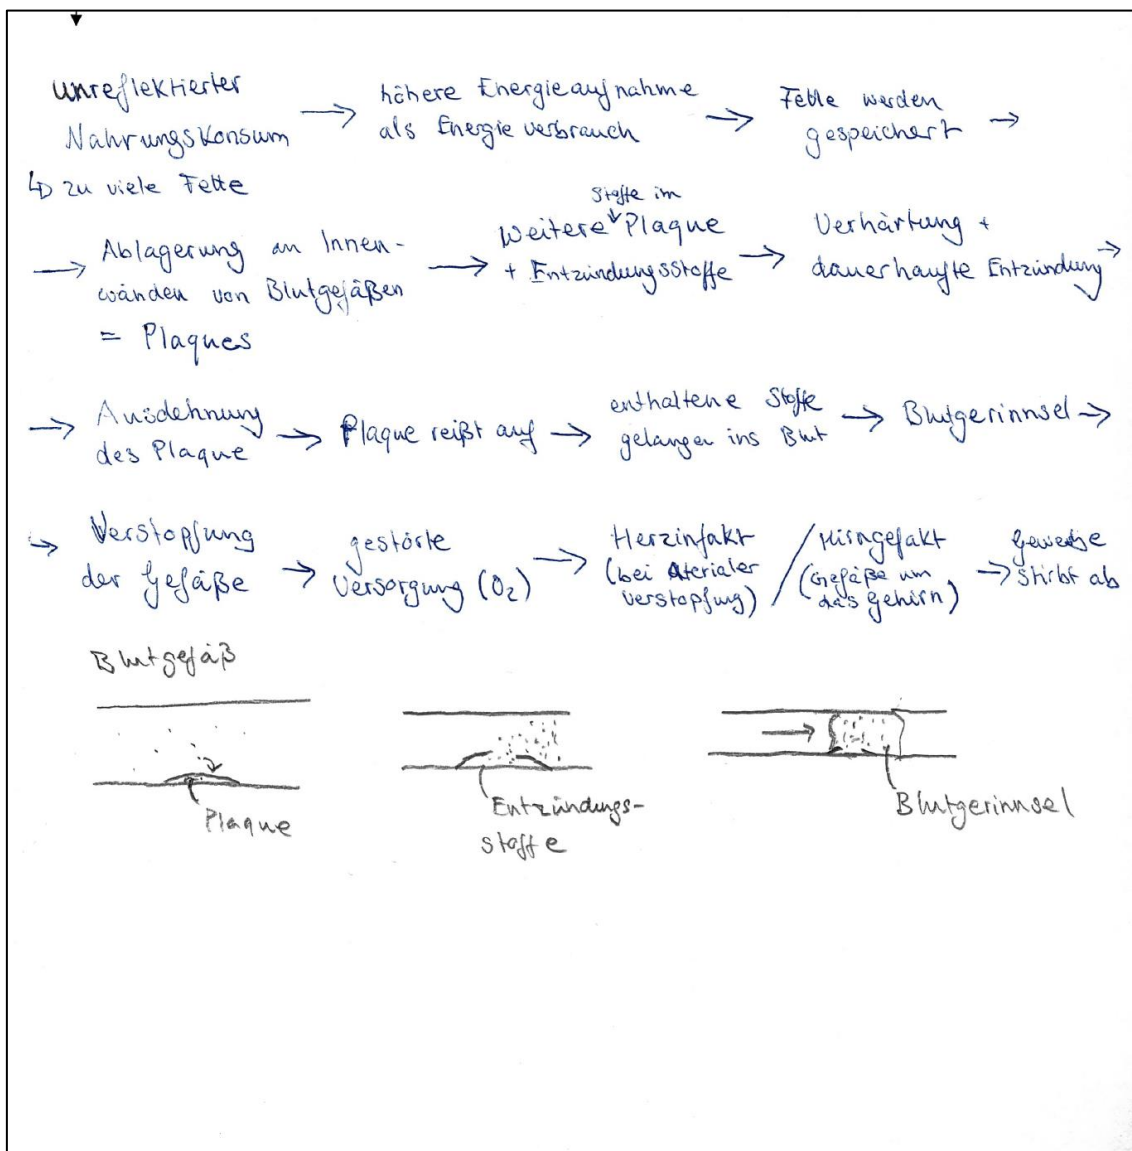 unreflektierter
Nahrungskonsum
↳ zu viele Fette
→ höhere Energieaufnahme
als Energieverbrauch
→ Fette werden
gespeichert →
→ Ablagerung an Innen-
wänden von Blutgefäßen
= Plaques
→ Weitere Stoffe im Plaque
+ Entzündungsstoffe
→ Verhärtung +
dauerhaufte Entzündung →
→ Ausdehnung
des Plaque
→ Plaque reißt auf
→ enthaltene Stoffe
gelangen ins Blut
→ Blutgerinnsel →
→ Verstopfung
der Gefäße
→ gestörte
Versorgung (O₂)
→ Herzinfakt
(bei Aterialer
verstopfung)
/ Hirngefakt
(Gefäße um
das Gehirn)
→ Gewebe
stirbt ab
Blutgefäß
Plaque
Entzündungs-
stoffe
Blutgerinnsel